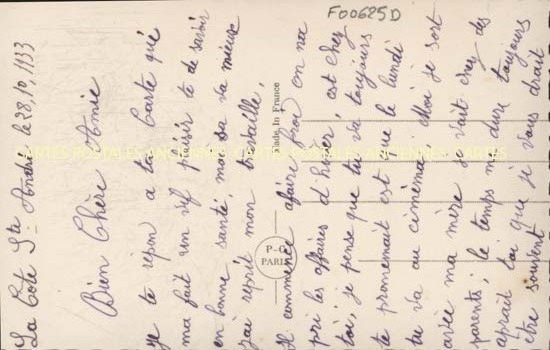 F00625D
La Côte St André le 28,10,1933
Bien Chère Amie
je te répon a ta Carte qué
ma fait un vif plaisir te de savoir
en bonne santé, moi sa va mieux
j'ai reprit mon travaille,
Il commence afaire froid on na
pri les affaires d'hiver, est chez
toi, je pense que tu va toujours
te promenait est que le lundi
tu va au cinéma. Moi je sort
avée ma mère je vait chez des
parents, le temps me dure toujours
aprait toi que je vous drait
être souvent
Made In France
P-C
PARIS
CARTES POSTALES ANCIENNES